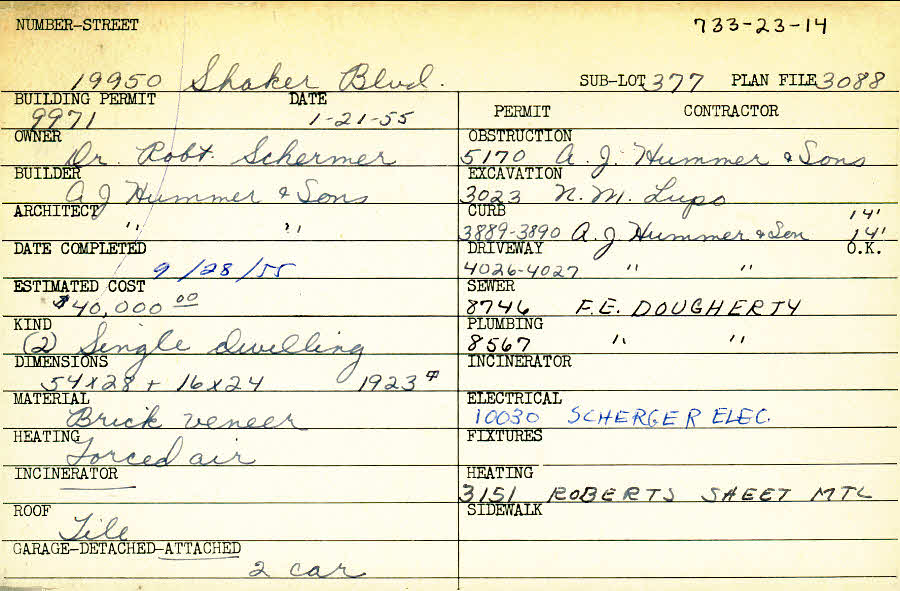 NUMBER-STREET 733-23-14
19950 Shaker Blvd. SUB-LOT 377 PLAN FILE 3088
BUILDING PERMIT DATE
9971 1-21-55
OWNER
Dr. Robt. Schermer
BUILDER
A J Hummer & Sons
ARCHITECT
" "
DATE COMPLETED
9/28/55
ESTIMATED COST
$40,000 00
KIND
(2) Single dwelling
DIMENSIONS
54x28 + 16x24 1923
MATERIAL
Brick veneer
HEATING
Forced air
INCINERATOR
ROOF
Tile
GARAGE-DETACHED-ATTACHED
2 car
PERMIT CONTRACTOR
OBSTRUCTION
5170 A. J. Hummer & Sons
EXCAVATION
3023 N. M. Lupo
CURB 14'
3889-3890 A. J Hummer & Son 14'
DRIVEWAY O.K.
4026-4027 " "
SEWER
8746 F.E. DOUGHERTY
PLUMBING
8567 " "
INCINERATOR
ELECTRICAL
10030 SCHERGER ELEC.
FIXTURES
HEATING
3151 ROBERTS SHEET MTL
SIDEWALK